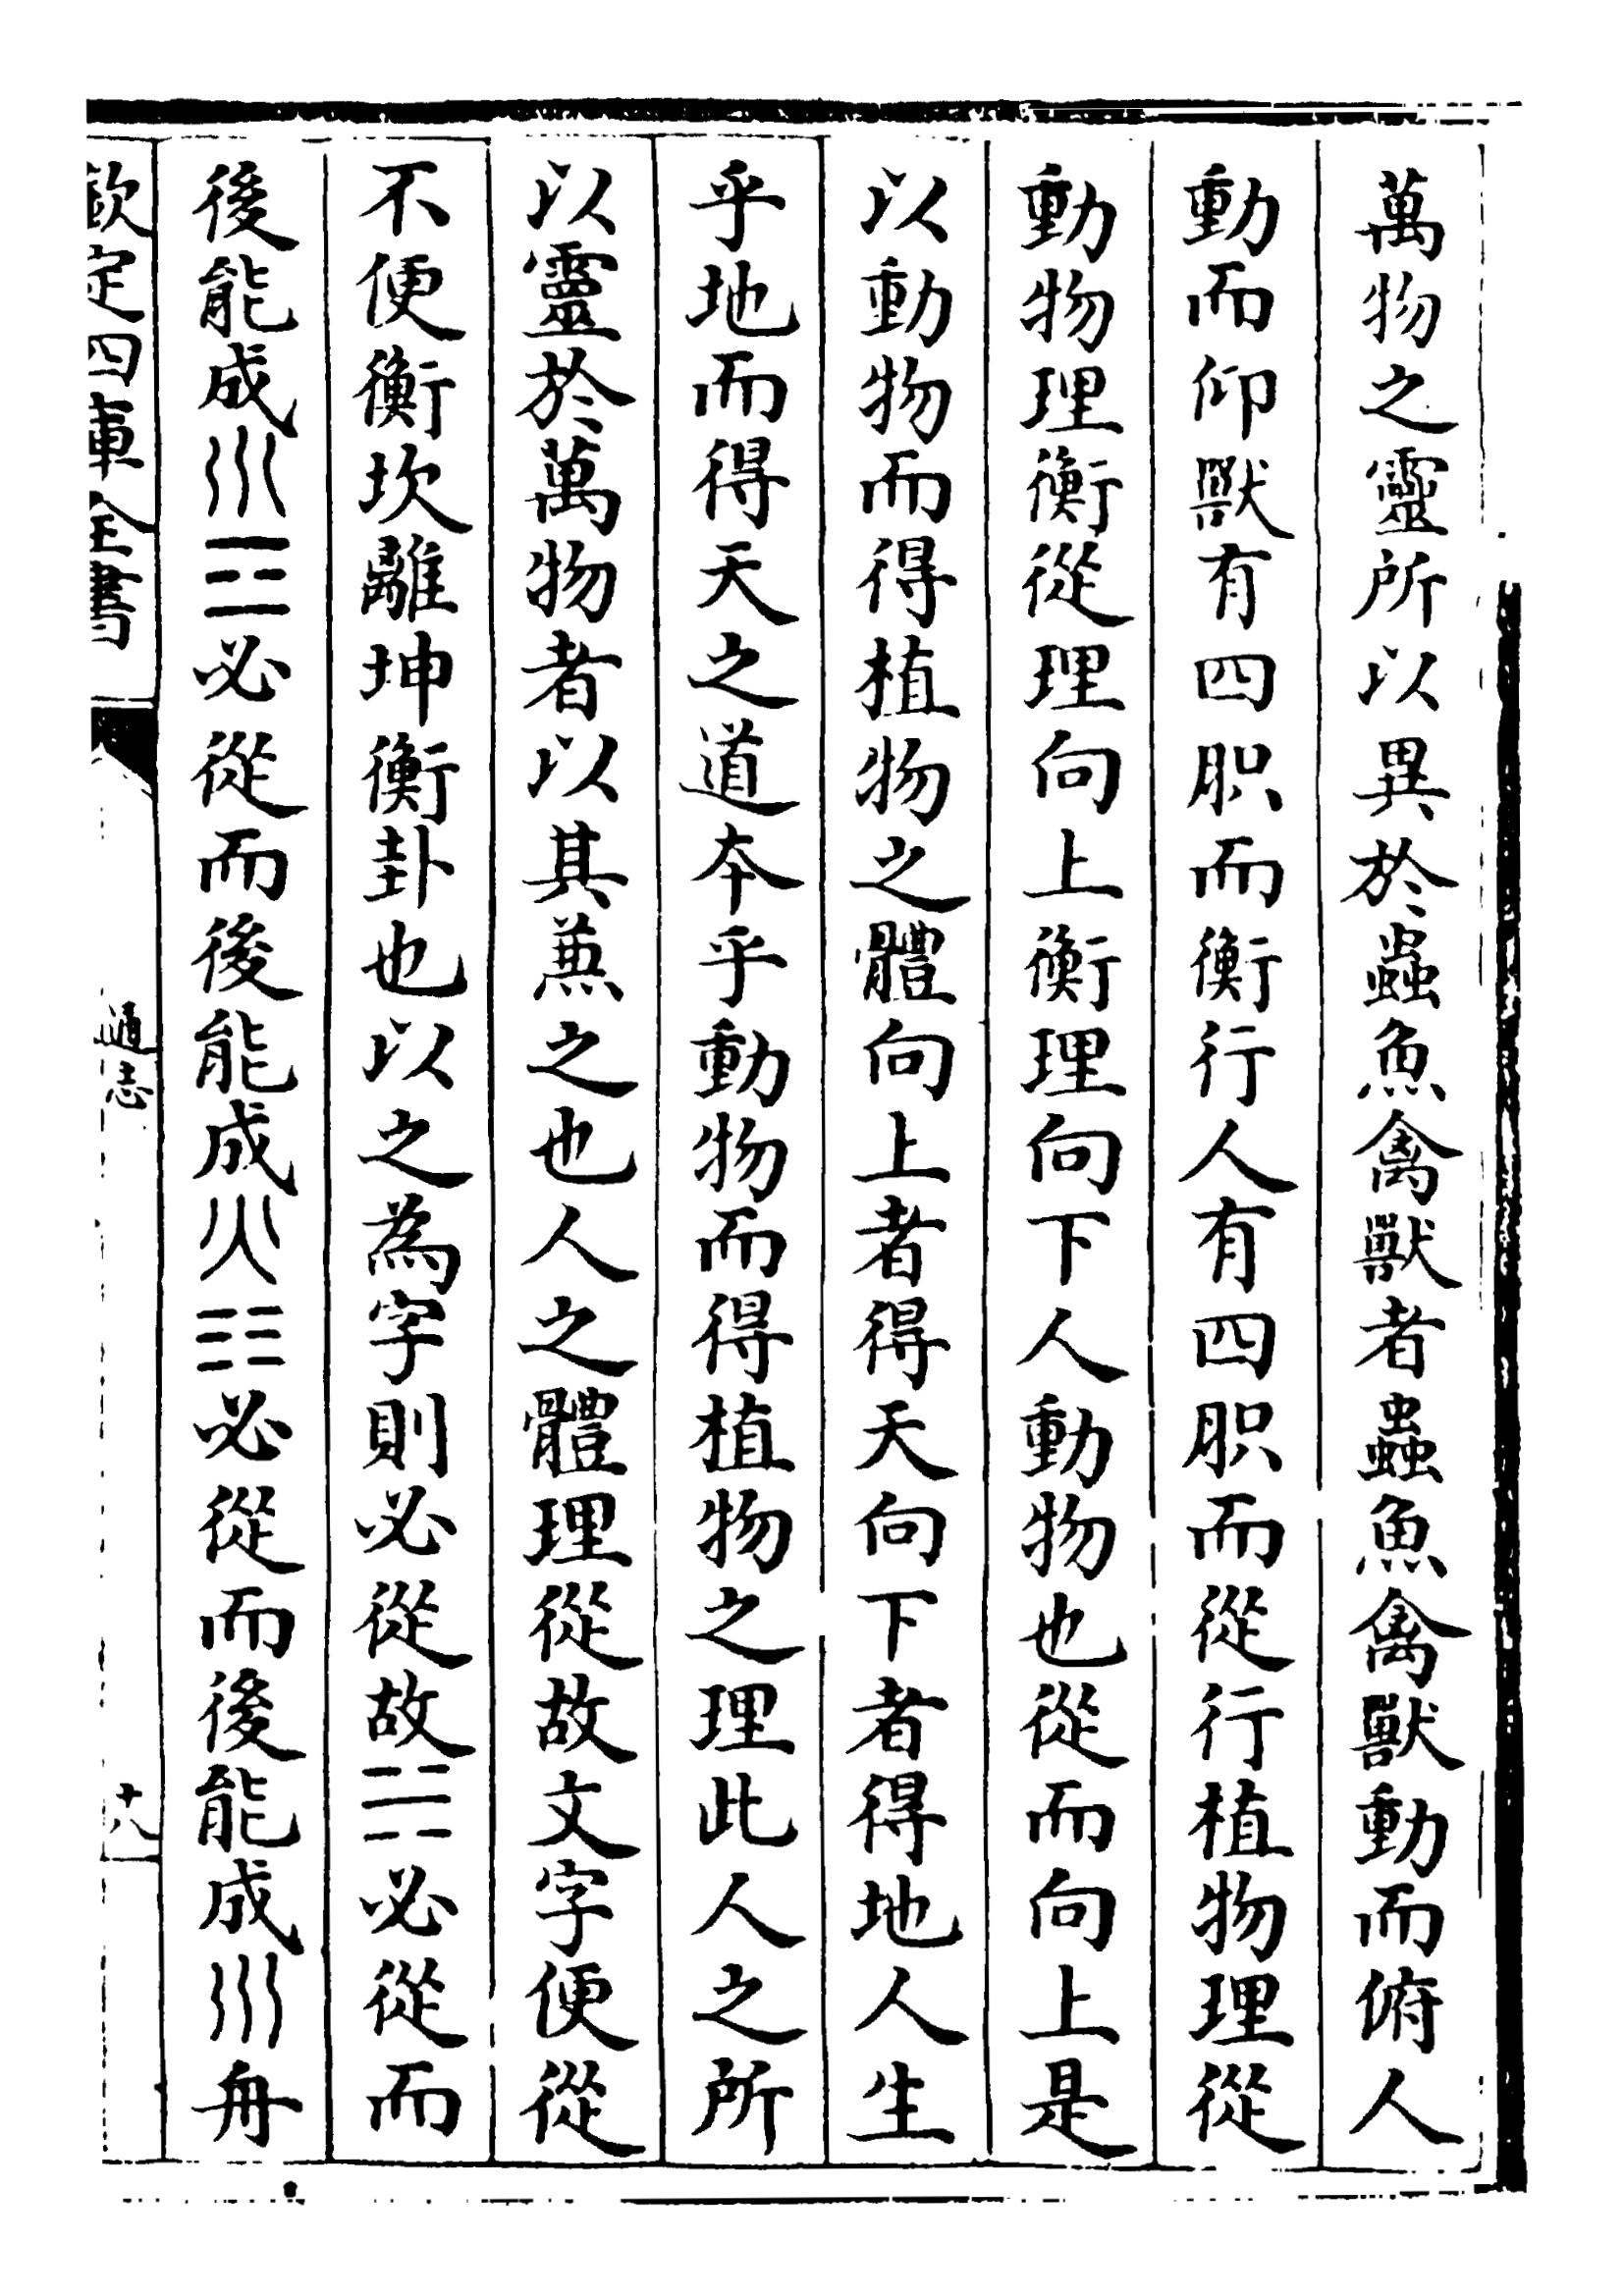 萬物之靈所以異於蟲魚禽獸者蟲魚禽獸動而俯人
動而仰獸有四胑而衡行人有四胑而從行植物理從
動物理衡從理向上衡理向下人動物也從而向上是
以動物而得植物之體向上者得天向下者得地人生
乎地而得天之道本乎動物而得植物之理此人之所
以靈於萬物者以其兼之也人之體理從故文字便從
不便衡坎離坤衡卦也以之為字則必從故☵必從而
後能成水☲必從而後能成火☷必從而後能成巛舟
欽定四庫全書
通志
十八